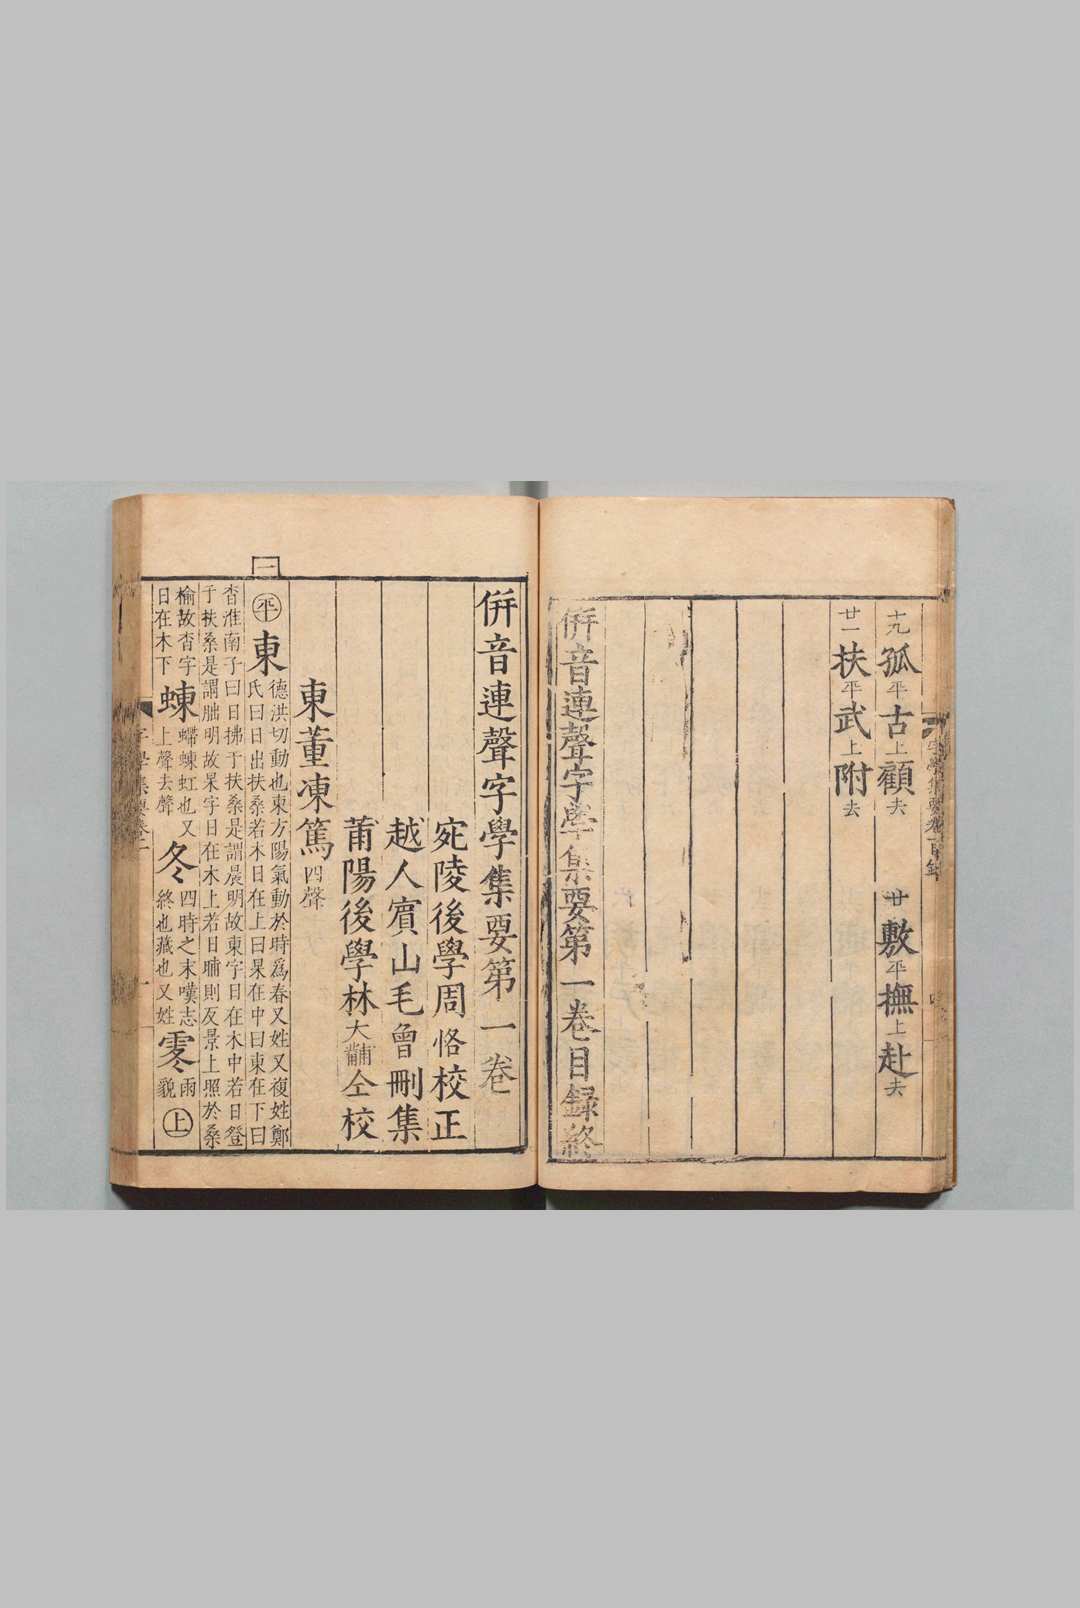 十九孤平古上顧去 廿敷平撫上赴去
廿一扶平武上附去
併音連聲字學集要第一卷目録終
併音連聲字學集要第一卷
宛陵後學周恪校正
越人賓山毛曾刪集
莆陽後學林大黼仝校
東董凍篤四聲
一
平東德洪切動也東方陽氣動於時爲春又姓又複姓鄭
氏曰日出扶桑若木日在上曰杲在中曰東在下曰
杳淮南子曰日拂于扶桑是謂晨明故東字日在木中若日登
于扶桑是謂朏明故杲字日在木上若日晡則反景上照於桑
榆故杳字
日在木下
蝀螮蝀虹也又
上聲去聲
冬四時之末嘆志
終也藏也又姓
零雨
貌
上